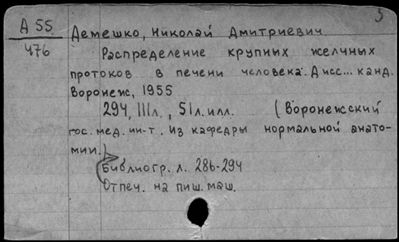 5
А 55
476
Демешко, Николай Дмитриевич
Распределение крупных желчных
протоков в печени человека. Дисс... канд.
Воронеж, 1955
294, III л., 51 л. илл. (Воронежский
гос. мед. ин-т. Из кафедры нормальной анато-
мии.)
Библиогр. л. 286-294
Отпеч. на пиш. маш.